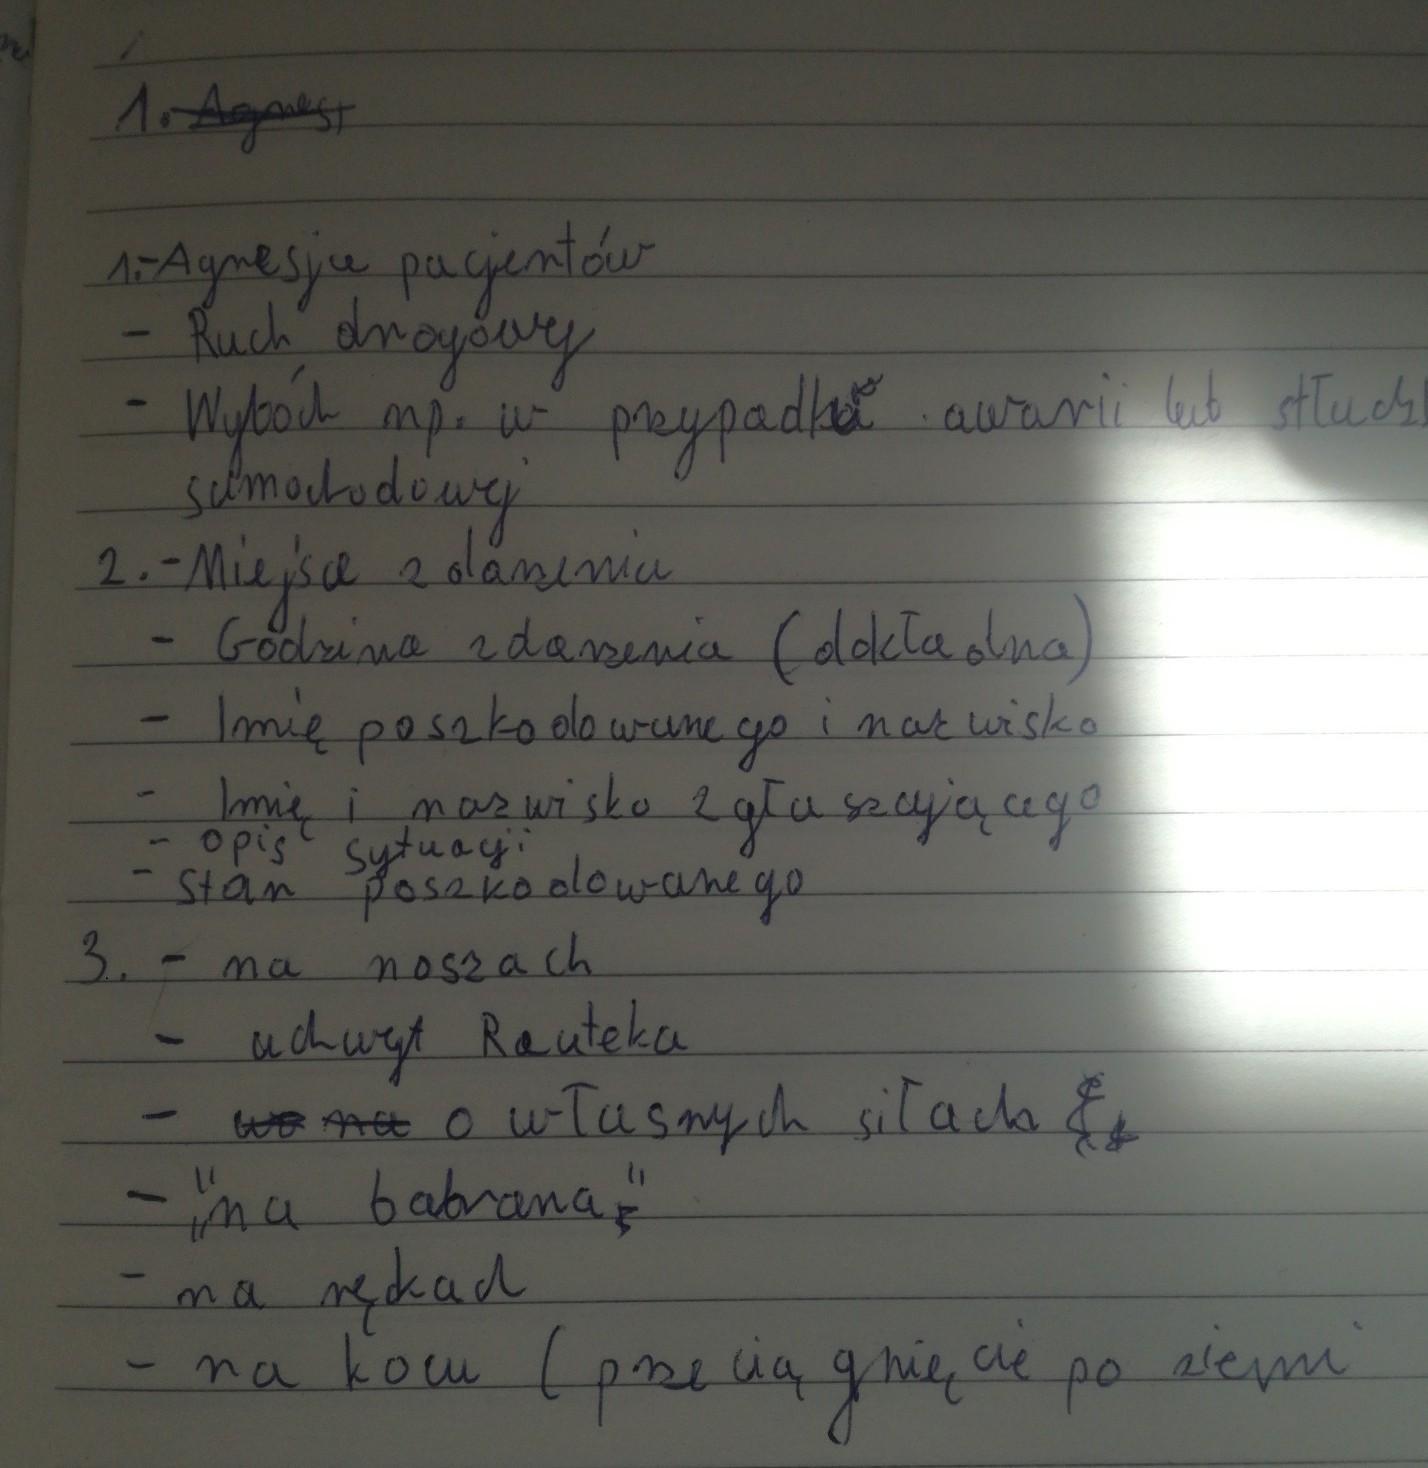 1. Agresj
1.-Agresja pacjentów
- Ruch drogowy
- Wybóch np. w przypadku awarii lub
samochodowej
2.-Miejsce zdarzenia
- Godzina zdarzenia (dokładna)
- Imię poszkodowanego i nazwisko
- Imię i nazwisko zgłaszającego
- opis sytuacji
- stan poszkodowanego
3. - na noszach
- uchwyt Rauteka
- o własnych siłach
- „na barana"
- na rękach
- na kocu (przeciągnięcie po ziemi